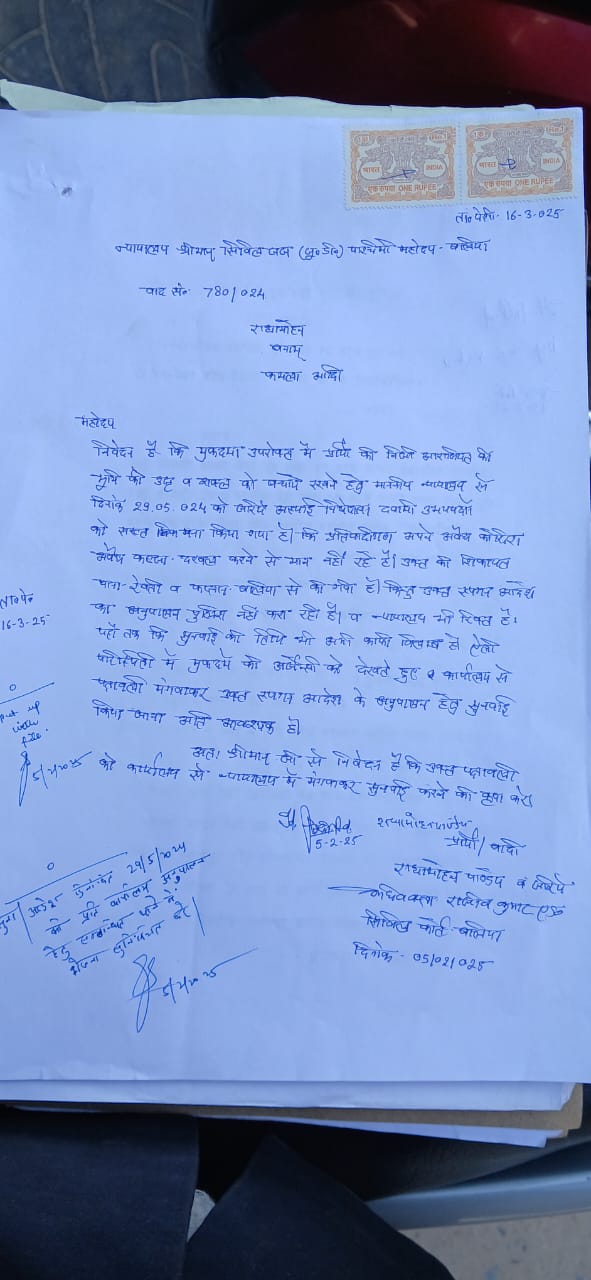 भारत INDIA
एक रुपया ONE RUPEE
भारत INDIA
एक रुपया ONE RUPEE
ता० पेशी- 16-3-025
न्यायालय श्रीमान् सिविल जज (जू०डी०) पश्चिमी महोदय- बलिया
वाद सं० 780/024
राधामोहन
बनाम्
कमला आदि
महोदय
निवेदन है कि मुकदमा उपरोक्त में प्रार्थी की निजी आराजियात की
भूमि की उद्दृ व शक्ल को बचाये रखने हेतु माननीय न्यायालय से
दिनांक 29.05.024 को जरिये अस्थाई निषेधाज्ञा उभयपक्षों
को सख्त मना किया गया है। कि प्रतिवादीगण अपने अवैध
अवैध कब्जा दखल करने से मान नहीं रहे हैं। उक्त की शिकायत
थाना-रेवती व कप्तान-बलिया से की गयी है। किन्तु उक्त स्थगन आदेश
का अनुपालन पुलिस नहीं करा रही है। व न्यायालय भी रिक्त है।
यहाँ तक कि सुनवाई की तिथि भी अभी काफी विलम्ब है ऐसी
परिस्थिति में मुकदमे की अर्जेन्सी को देखते हुए कार्यालय से
पत्रावली मंगवाकर उक्त स्थगन आदेश के अनुपालन हेतु सुनवाई
किया जाना अति आवश्यक है।
अतः श्रीमान् जी से निवेदन है कि उक्त पत्रावली
को कार्यालय से न्यायालय में मंगवाकर सुनवाई करने की कृपा करें।
5-2-25
प्रार्थी/वादी
राधामोहन पाण्डेय व जरिये
अधिवक्ता राजीव कुमार
सिविल कोर्ट-बलिया
दिनांक- 05/02/025
ता० पे०
16-3-25
Put up
with
file.
5/2/2025
आदेश दिनांकित 29/5/2024
की प्रति कार्यालय अनुपालन
हेतु सम्बन्धित थाने में
भेजना सुनिश्चित करें।
5/2/2025